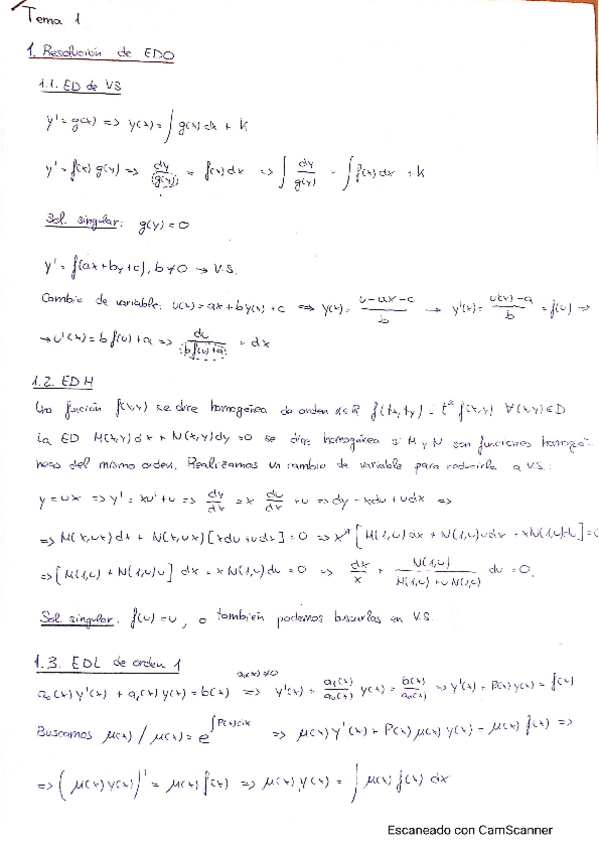 Tema 1
1. Resolución de EDO
1.1. ED de VS
y' = g(x) => y(x) = ∫ g(x) dx + K
y' = f(x) g(y) => dy/g(y) = f(x) dx => ∫ dy/g(y) = ∫ f(x) dx + K
Sol. singular: g(y) = 0
y' = f(ax+by+c), b≠0 → V.S.
Cambio de variable: u(x) = ax + by(x) + c => y(x) = (u-ax-c)/b → y'(x) = (u'(x)-a)/b = f(u) →
→ u'(x) = b f(u) + a => du/(b f(u)+a) = dx
1.2. EDH
Una función f(x,y) se dice homogénea de orden α∈ℝ f(tx,ty) = t^α f(x,y) ∀(x,y)∈D
La ED M(x,y)dx + N(x,y)dy = 0 se dice homogénea si M y N son funciones homogé-
neas del mismo orden. Realizamos un cambio de variable para reducirla a V.S.:
y = ux => y' = xu' + u => dy/dx = x du/dx + u => dy = xdu + udx =>
=> M(x,ux)dx + N(x,ux)[xdu + udx] = 0 => x^α [M(1,u)dx + N(1,u)udx + xN(1,u)du] = 0
=> [M(1,u) + N(1,u)u] dx + xN(1,u)du = 0 => dx/x + N(1,u)/(M(1,u) + uN(1,u)) du = 0.
Sol. singular: f(u) = u, o también podemos buscarlas en V.S.
1.3. EDL de orden 1
a₀(x) y'(x) + a₁(x) y(x) = b(x) =>(a₀(x)≠0) y'(x) + a₁(x)/a₀(x) y(x) = b(x)/a₀(x) => y'(x) + P(x) y(x) = f(x)
Buscamos μ(x) / μ(x) = e^∫P(x)dx => μ(x) y'(x) + P(x) μ(x) y(x) = μ(x) f(x) =>
=> (μ(x) y(x))' = μ(x) f(x) => μ(x) y(x) = ∫ μ(x) f(x) dx
Escaneado con CamScanner